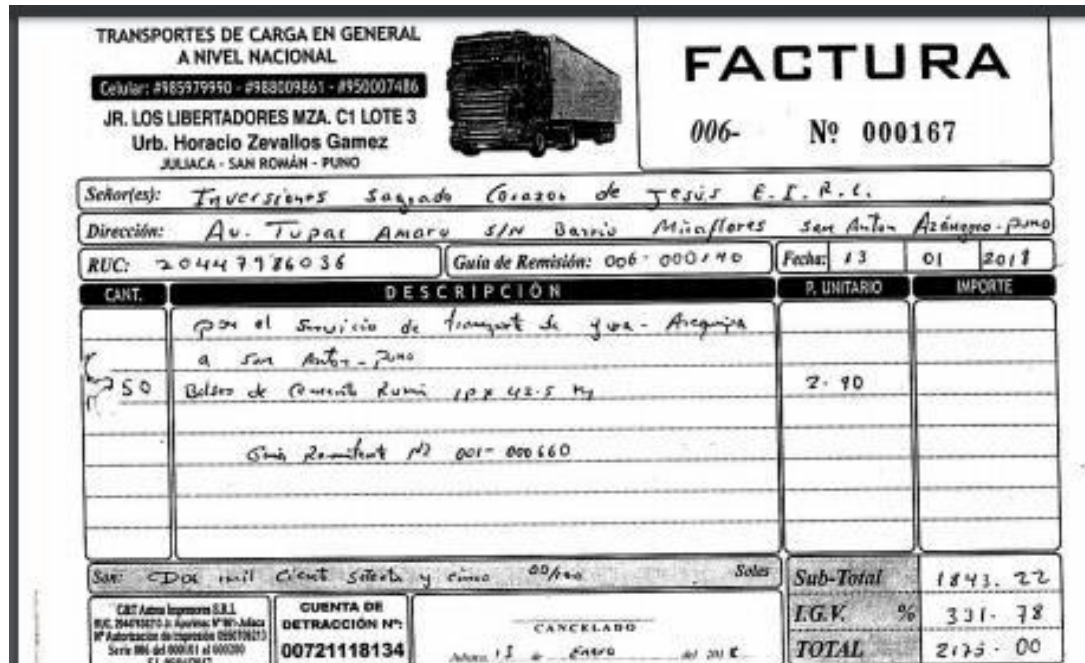 TRANSPORTES DE CARGA EN GENERAL
A NIVEL NACIONAL
Celular: #985979990 - #988009861 - #950007486
JR. LOS LIBERTADORES MZA. C1 LOTE 3
Urb. Horacio Zevallos Gamez
JULIACA - SAN ROMÁN - PUNO
FACTURA
006- Nº 000167
Señor(es): Inversiones Sagrado Corazon de Jesús E.I.R.L.
Dirección: Av. Tupac Amaru S/N Barrio Miraflores San Anton Azángaro-Puno
RUC: 20447986036 Guía de Remisión: 006-000140 Fecha: 13 01 2018
CANT. DESCRIPCIÓN P. UNITARIO IMPORTE
por el Servicio de de Arequipa
a San Anton - Puno
750 Bolsas de Cemento Rumi 42.5 Kg 2.90
Guia Remitent Nº 001-000660
Son: Dos mil Cient Setenta y cinco 00/100 Soles
Sub-Total 1843.22
I.G.V. % 331.78
TOTAL 2175.00
CUENTA DE
DETRACCIÓN Nº:
00721118134
CANCELADO
13 de Enero del 2018